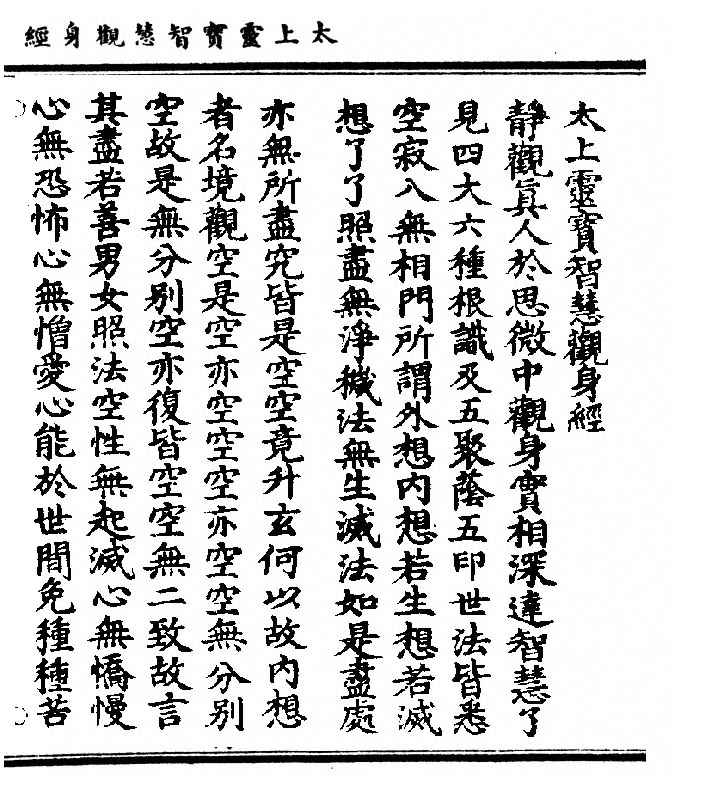 太上靈寶智慧觀身經
太上靈寶智慧觀身經
靜觀真人於思微中觀身實相深達智慧了
見四大六種根識及五聚蔭五印世法皆悉
空寂入無相門所謂外想內想若生想若滅
想了了照盡無淨穢法無生滅法如是盡處
亦無所盡究皆是空空竟升玄何以故內想
者名境觀空是空亦空空空亦空空無分別
空故是無分別空亦復皆空空無二致故言
其盡若善男女照法空性無起滅心無憍慢
心無恐怖心無憎愛心能於世間免種種苦